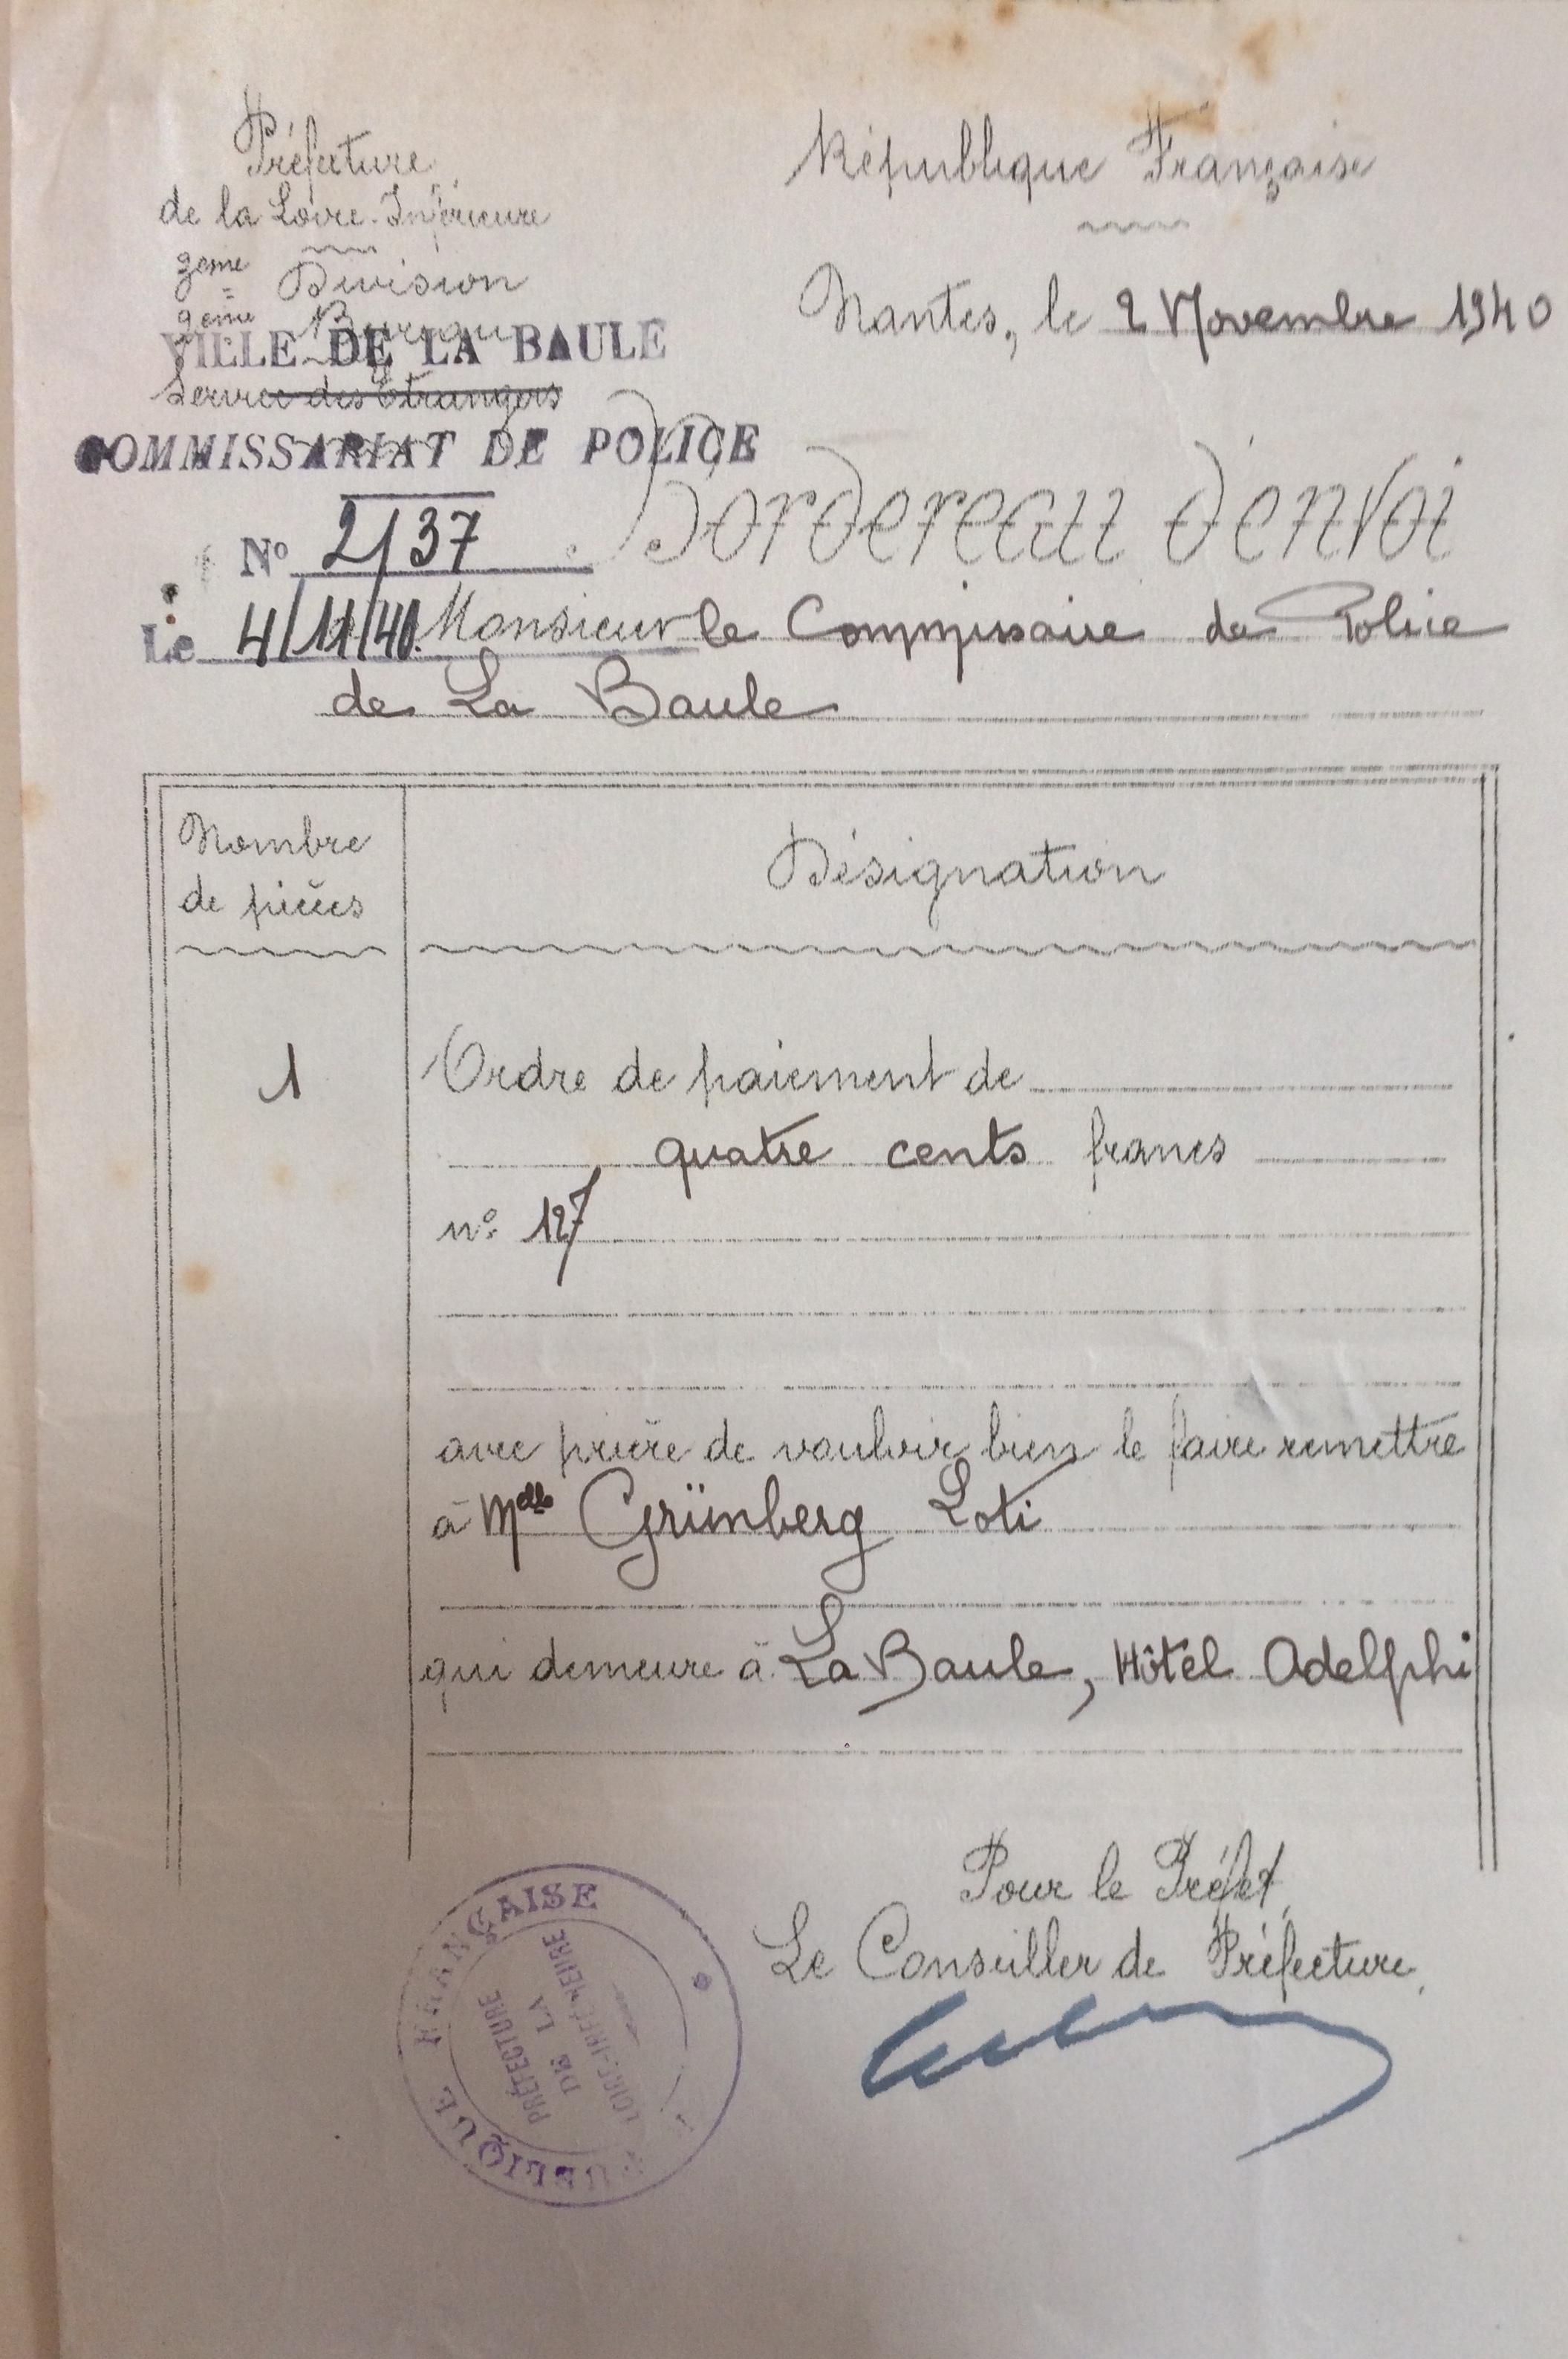 Préfecture
de la Loire-Inférieure
Division
Bureau
Service des Etrangers
République Française
Nantes, le 2 Novembre 1940
VILLE DE LA BAULE
COMMISSARIAT DE POLICE
N° 2137
Le 4/11/40.
Bordereau d'envoi
Monsieur le Commissaire de Police
de La Baule
Nombre
de pièces
Désignation
1
Ordre de paiement de
quatre cents francs
n° 127
avec prière de vouloir bien le faire remettre
à Melle Grünberg Loti
qui demeure à La Baule, Hôtel Adelphi
Pour le Préfet,
Le Conseiller de Préfecture,
RÉPUBLIQUE FRANÇAISE
PRÉFECTURE
DE LA
LOIRE-INFÉRIEURE